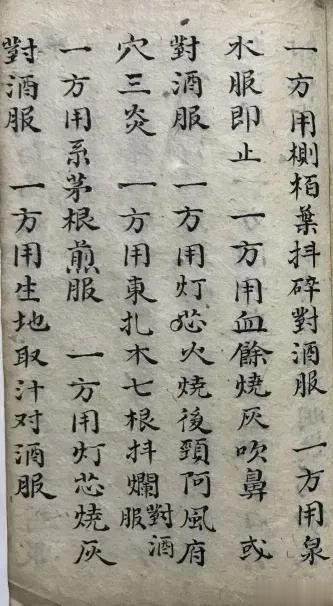 一方用側栢葉抖碎對酒服　一方用泉
水服即止　一方用血餘燒灰吹鼻　或
對酒服　一方用灯芯火燒後頸阿風府
穴三炎　一方用東扎木七根抖爛對酒服
一方用系茅根煎服　一方用灯芯燒灰
對酒服　一方用生地取汁对酒服